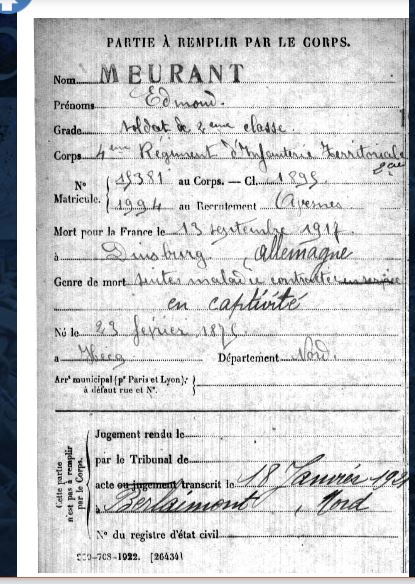 PARTIE À REMPLIR PAR LE CORPS.
Nom MEURANT
Prénoms Edmond.
Grade soldat de 2eme classe.
Corps 4eme Régiment d'Infanterie Territoriale
N° Matricule. 15381 au Corps. — Cl. 1895
1994 au Recrutement Avesnes
Mort pour la France le 13 septembre 1917
à Duisburg, allemagne
Genre de mort suites maladie contractée en service
en captivité
Né le 23 février 1876
à Hecq Département Nord.
Arrt municipal (pr Paris et Lyon), à défaut rue et N°.
Cette partie n'est pas à remplir par le Corps.
Jugement rendu le
par le Tribunal de
acte ou jugement transcrit le 18 Janvier
à Berlaimont, Nord
N° du registre d'état civil
-708-1922. [26434]